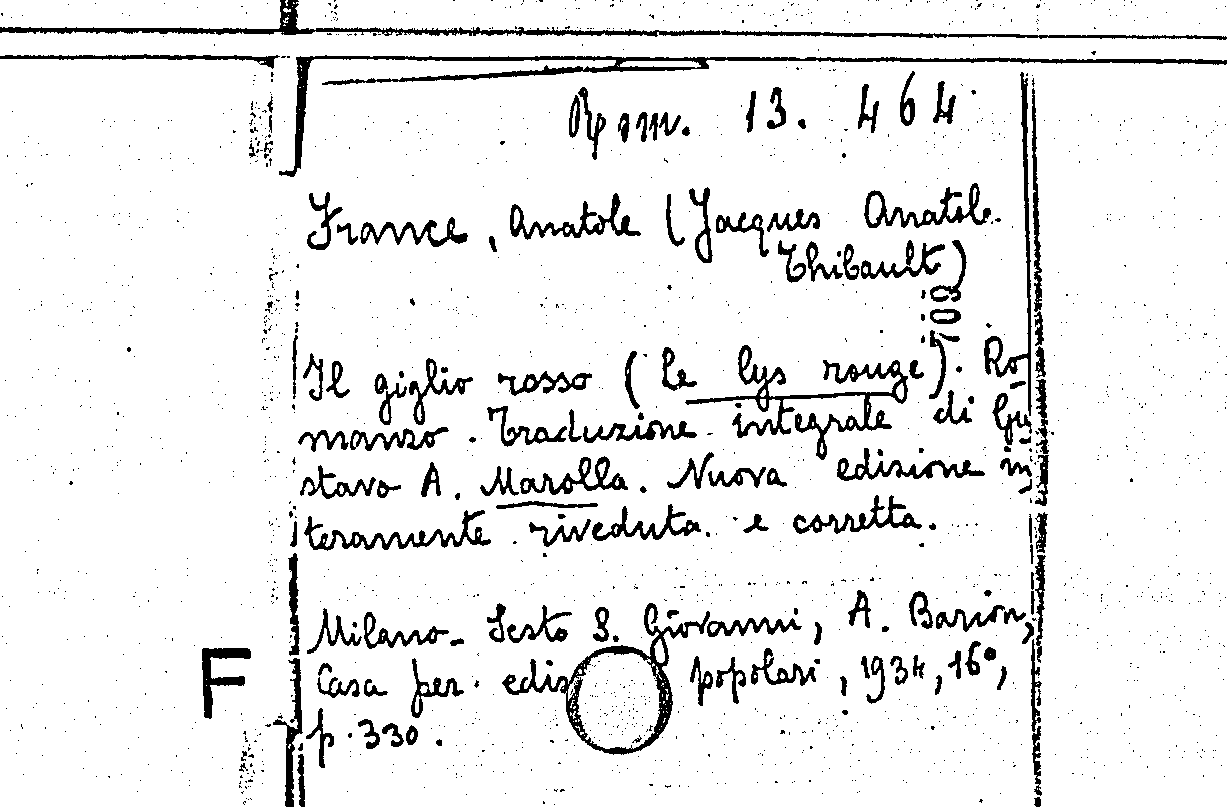 Rom. 13. 464
France, Anatole (Jacques Anatole
Thibault)
709
Il giglio rosso (Le lys rouge). Ro-
manzo. Traduzione integrale di Gu-
stavo A. Marolla. Nuova edizione in-
teramente riveduta e corretta.
Milano - Sesto S. Giovanni, A. Barion,
Casa per ediz popolari, 1934, 16°,
F
p. 330.